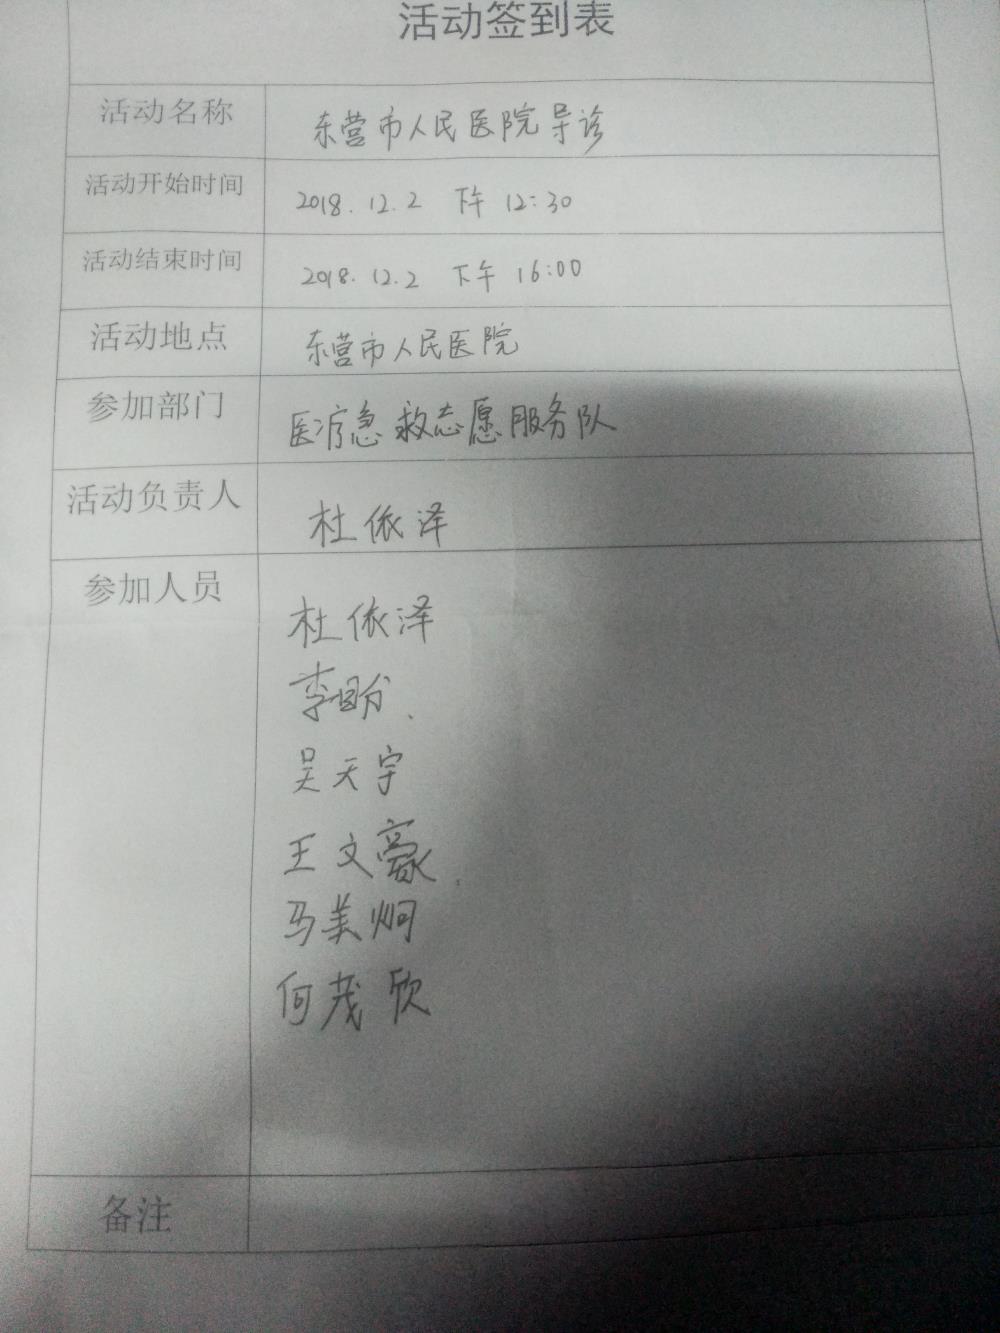 活动签到表
活动名称 东营市人民医院导诊
活动开始时间 2018.12.2 下午 12:30
活动结束时间 2018.12.2 下午 16:00
活动地点 东营市人民医院
参加部门 医疗急救志愿服务队
活动负责人 杜依泽
参加人员 杜依泽
李盼
吴天宇
王文豪
马美炯
何茂欣
备注